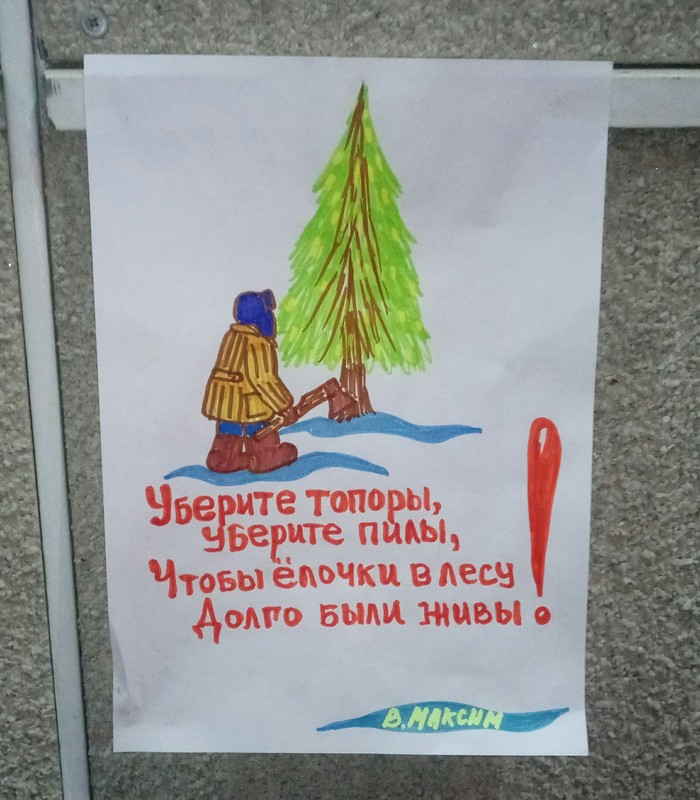 Уберите топоры,
уберите пилы,
Чтобы ёлочки в лесу
Долго были живы!
В. МАКСИМ